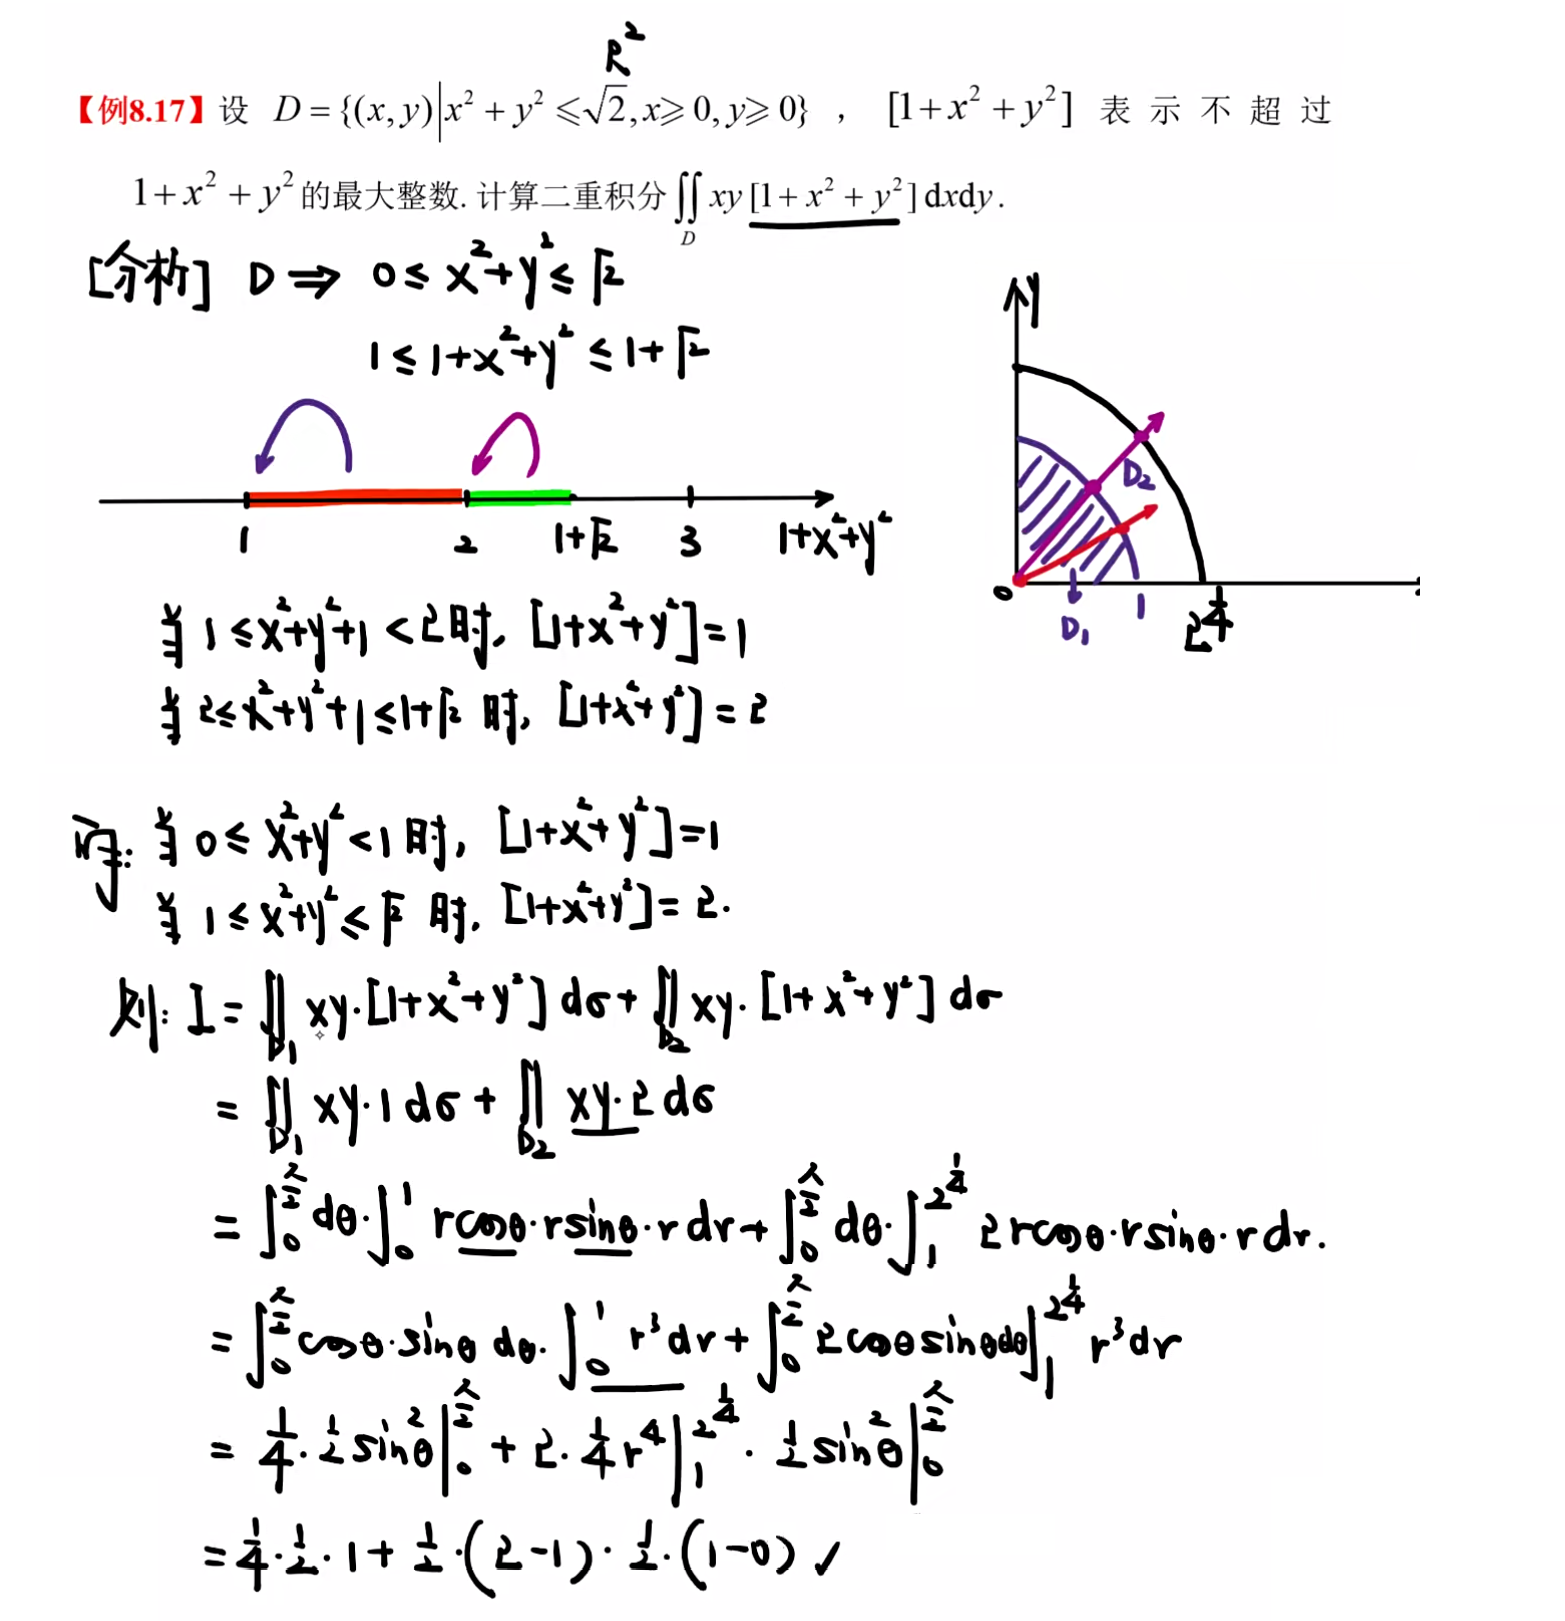 R²
【例8.17】设 D={(x,y)|x²+y²≤√2,x≥0,y≥0}，[1+x²+y²]表示不超过
1+x²+y²的最大整数.计算二重积分∬_D xy[1+x²+y²]dxdy.
[分析] D⇒ 0≤x²+y²≤√2
1≤1+x²+y²≤1+√2
1 2 1+√2 3 1+x²+y²
y
D₂
0 D₁ 1 2^(1/4)
当1≤x²+y²+1<2时,[1+x²+y²]=1
当2≤x²+y²+1≤1+√2时,[1+x²+y²]=2
解:当0≤x²+y²<1时,[1+x²+y²]=1
当1≤x²+y²≤√2时,[1+x²+y²]=2.
则:I=∬_D₁ xy·[1+x²+y²]dσ+∬_D₂ xy·[1+x²+y²]dσ
=∬_D₁ xy·1dσ+∬_D₂ xy·2dσ
=∫_0^(π/2) dθ·∫_0^1 rcosθ·rsinθ·rdr+∫_0^(π/2) dθ·∫_1^(2^(1/4)) 2rcosθ·rsinθ·rdr.
=∫_0^(π/2) cosθ·sinθdθ·∫_0^1 r³dr+∫_0^(π/2) 2cosθsinθdθ∫_1^(2^(1/4)) r³dr
=1/4·1/2sin²θ|_0^(π/2)+2·1/4r⁴|_1^(2^(1/4))·1/2sin²θ|_0^(π/2)
=1/4·1/2·1+1/2·(2-1)·1/2·(1-0)✓